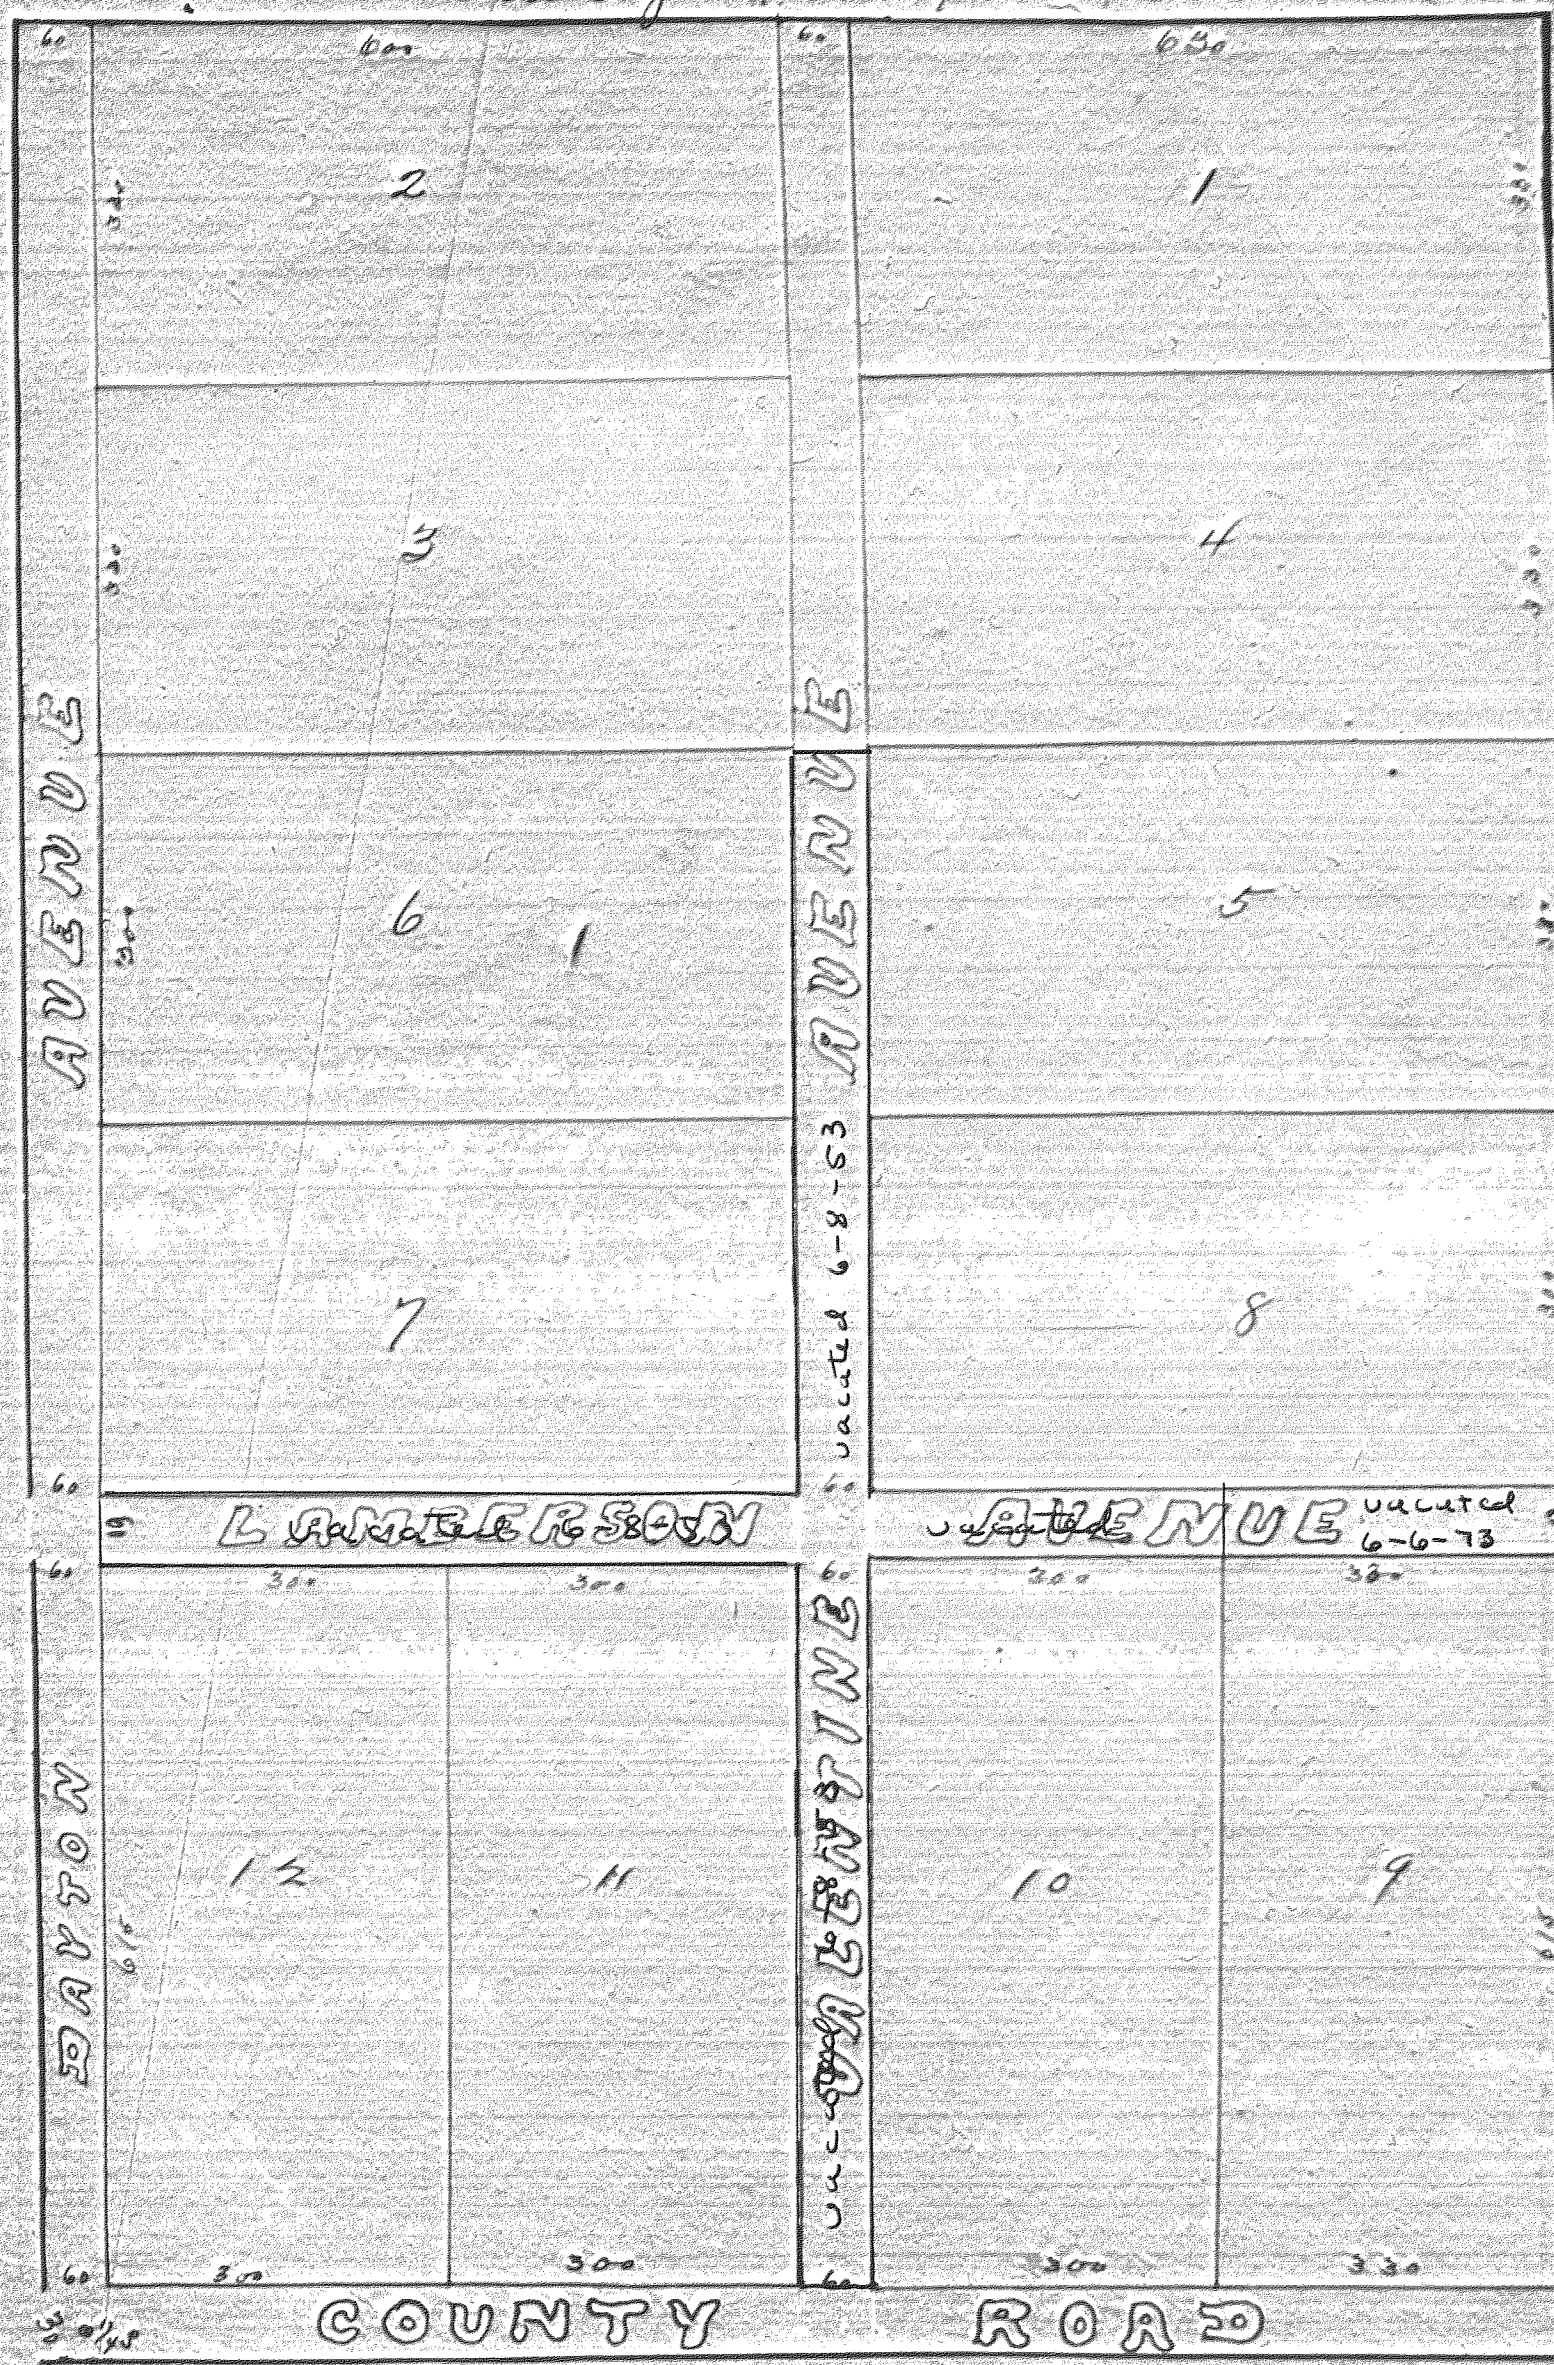 60 600 60 630
2 1
320
3 4
330 330
AVENUE
AVENUE
6 1 5
300
7 8
vacated 6-8-53
60 60
LAMBERSON AVENUE
vacated 6-8-53 vacated vacated
6-6-73
60 300 300 60 300 330
DAYTON
VALENTINE
vacated 6-8-53
12 11 10 9
616 615
60 300 300 60 300 330
COUNTY ROAD